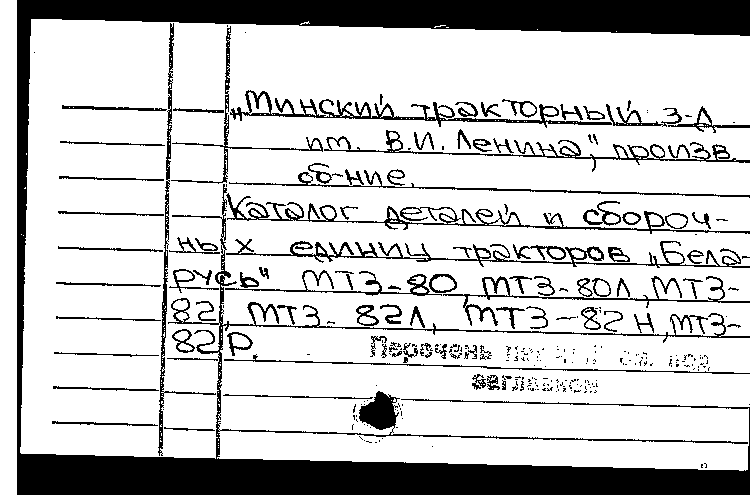 „Минский тракторный з-д
им. В.И. Ленина", произв.
об-ние.
Каталог деталей и сбороч-
ных единиц тракторов „Бела-
русь" МТЗ-80, МТЗ-80Л, МТЗ-
82, МТЗ-82Л, МТЗ-82Н, МТЗ-
82Р.
Перечень см. под
заглавием